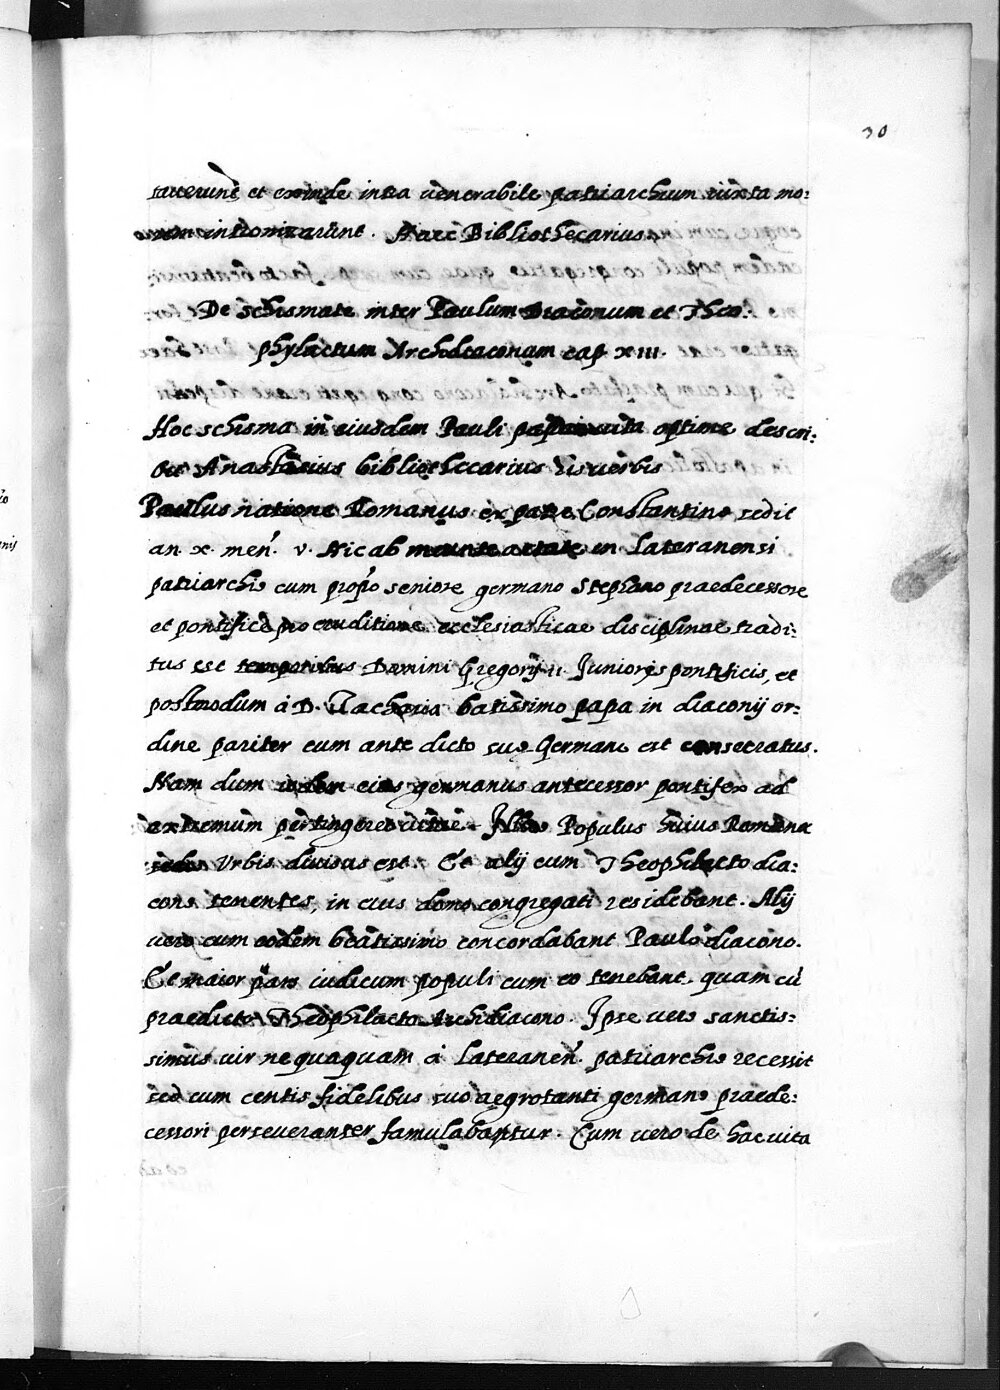 30
tulerunt et exinde intra venerabile patriarchium iuxta mo:
rem intronizarunt. Haec Bibliothecarius
De schismate inter Paulum Diaconum et Theo:
phylactum Archidiaconum cap XIII.
Hoc schisma in eiusdem Pauli papae vita optime descri:
bit Anastasius bibliothecarius his verbis
Paulus natione Romanus ex patre Constantino sedit
an. x. men̄. v. Hic ab ineunte aetate in Lateranensi
patriarchio cum proprio seniore germano Stephano praedecessore
et pontifice pro eruditione ecclesiasticae disciplinae tradi:
tus est temporibus Domini Gregorij II Junioris pontificis, et
postmodum à D. Zacharia batissimo papa in diaconij or:
dine pariter cum ante dicto suo Germano est consecratus.
Nam dum eius germanus antecessor pontifex ad
extremum pertingeret vitae. Populus huius Romanae
Urbis divisus est. Et alij cum Theophilacto dia:
cono tenentes, in eius domo congregati residebant. Alij
vero cum eodem beatissimo concordabant Paulo diacono.
Et maior pars iudicum populi cum eo tenebant quam cū
praedicto Theophilacto Archidiacono. Ipse vero sanctis:
simus vir nequaquam à Lateranen̄. patriarchio recessit
sed cum centis fidelibus suo aegrotanti germano praede:
cessori perseveranter famulabantur. Cum vero de hac vita